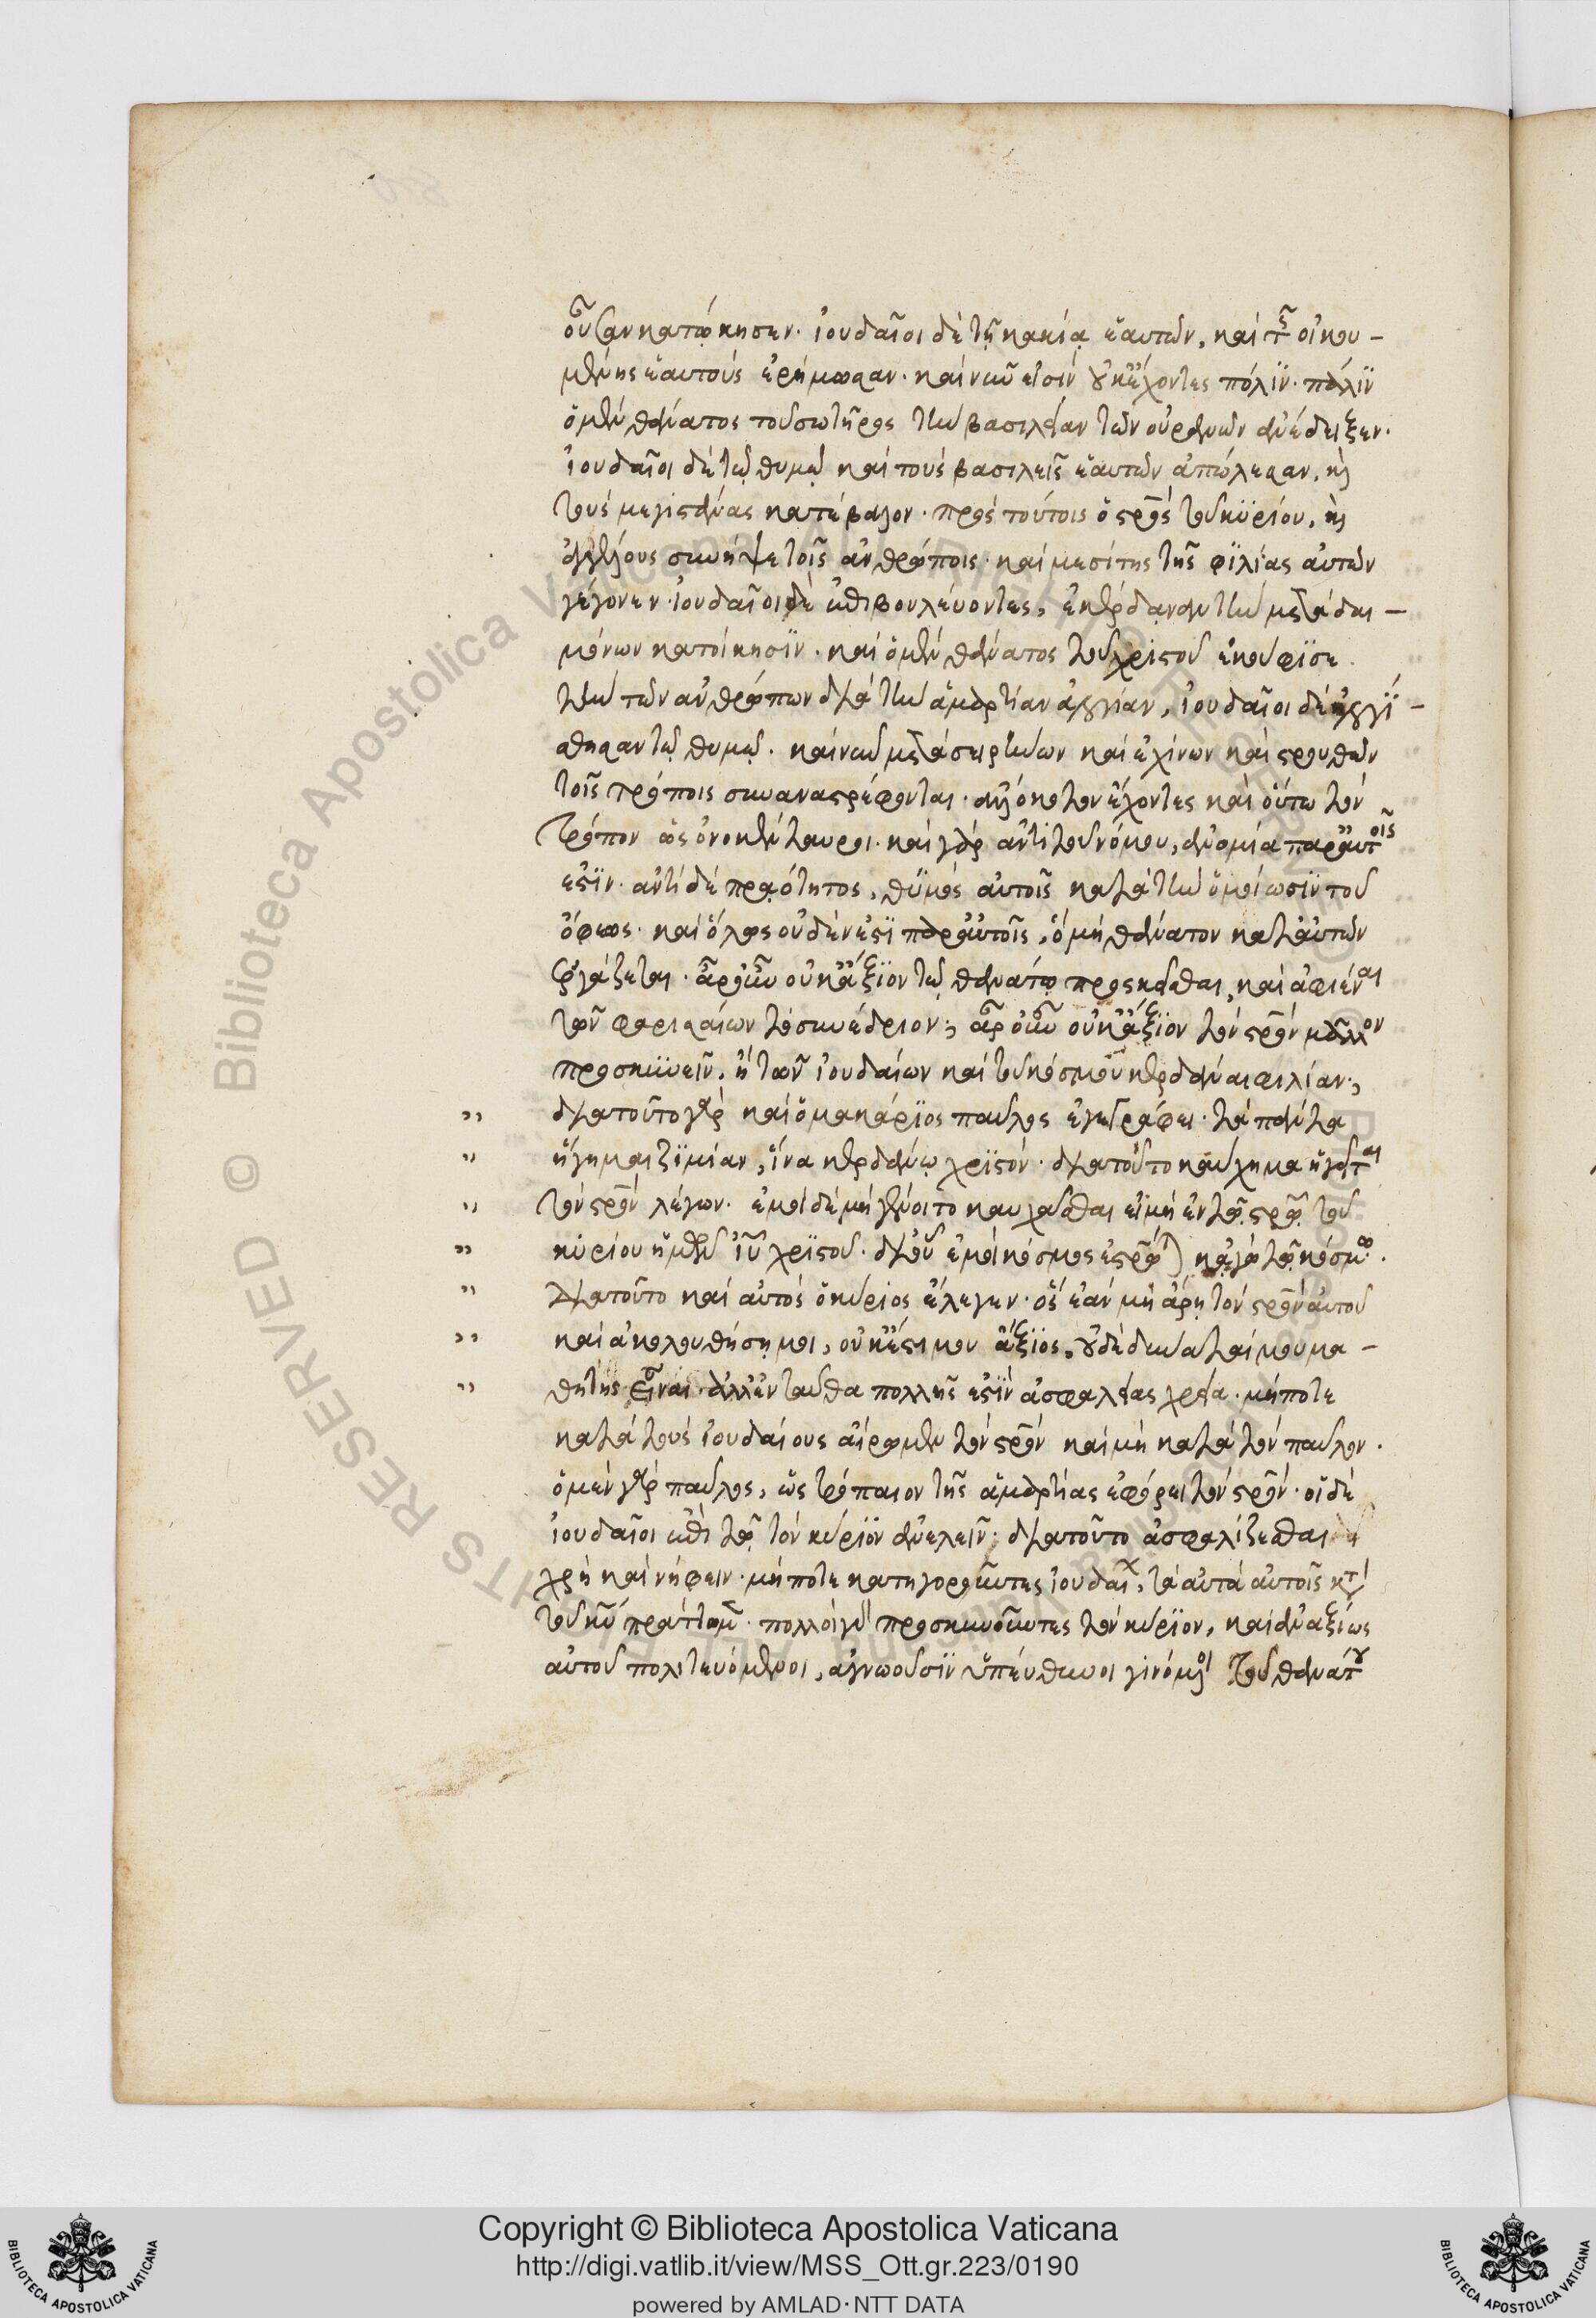 οὖσαν κατῴκησεν· ἰουδαῖοι δὲ τῇ κακίᾳ ἑαυτῶν, καὶ τῆς οἰκου –
μένης ἑαυτοὺς ἐρήμωσαν· καὶ νῦν εἰσὶν οὐκ ἔχοντες πόλϊν· πάλϊν
ὁ μὲν θάνατος τοῦ σωτῆρος τὴν βασιλείαν τῶν οὐρανῶν ἀνέδειξεν·
ἰουδαῖοι δὲ τῷ θυμῷ καὶ τοὺς βασιλεῖς ἑαυτῶν ἀπώλεσαν, καὶ
τοὺς μεγιστάνας κατέβαλον· πρὸς τούτοις ὁ σταυρὸς τοῦ κϋρίου, καὶ
ἀγγέλους συνῆψε τοῖς ἀνθρώποις· καὶ μεσίτης τῆς φϊλίας αὐτῶν
γέγονεν· ἰουδαῖοι δὲ ἐπιβουλεύοντες, ἐκέρδαναν τὴν μετὰ δαι –
μόνων κατοίκησϊν· καὶ ὁ μὲν θάνατος τοῦ χριστοῦ ἐκούφϊσε
τὴν τῶν ἀνθρώπων διὰ τὴν ἁμαρτίαν ἀργίαν, ἰουδαῖοι δὲ ἠγρϊ –
ώθησαν τῷ θυμῷ· καὶ νῦν μετὰ σειρήνων καὶ ἐχίνων καὶ στρουθῶν
τοῖς τρόποις συναναστρέφονται· ἀνόνητον ἔχοντες καὶ οὕτω τὸν
τρόπον ὡς ὀνοκένταυροι· καὶ γὰρ ἀντὶ τοῦ νόμου, ἀνομία παρ' αὐτοῖς
ἐστϊν· ἀντὶ δὲ πρᾳότητος, θϋμὸς αὐτοῖς κατὰ τὴν ὁμοίωσϊν τοῦ
ὄφεως· καὶ ὅλως οὐδέν ἐστϊ παρ' αὐτοῖς, ὃ μὴ θάνατον κατ' αὐτῶν
ἐργάζεται· ἆρ' οὖν οὐκ ἄξϊον τῷ θανάτῳ προσκεῖσθαι, καὶ ἀφιέναι
τῶν φαρισαίων τὸ συνέδριον; ἆρ' οὖν οὐκ ἄξϊον τὸν σταυρὸν μᾶλλον
προσκϋνεῖν, ἢ τῶν ἰουδαίων καὶ τοῦ κόσμου κερδάναι φιλίαν;
διατοῦτο γὰρ καὶ ὁ μακάρϊος παῦλος ἐγεγράφει· τὰ πάντα
ἥγημαι ζϊμίαν, ἵνα κερδάνω χρϊστόν· διατοῦτο καύχημα ἡγεῖται
τὸν σταυρὸν λέγων· ἐμοὶ δὲ μὴ γένοιτο καυχᾶσθαι εἰμὴ ἐν τῷ σταυρῷ τοῦ
κυρίου ἡμῶν ἰῦ χρϊστοῦ· δι' οὗ ἐμοὶ κόσμος ἐσταύρωται κἀγὼ τῷ κόσμῳ·
διατοῦτο καὶ αὐτὸς ὁ κύριος ἔλεγεν· ὃς ἐὰν μὴ ἄρῃ τὸν σταυρὸν αὐτοῦ
καὶ ἀκολουθήσῃ μοι, οὐκ ἔστι μου ἄξϊος, οὐδὲ δύναταί μου μα –
θητὴς εἶναι· ἀλλ' ἐνταῦθα πολλῆς ἐστϊν ἀσφαλείας χρεία· μήποτε
κατὰ τοὺς ἰουδαίους αἴρωμεν τὸν σταυρὸν καὶ μὴ κατὰ τὸν παῦλον·
ὁ μὲν γὰρ παῦλος, ὡς τρόπαιον τῆς ἁμαρτίας ἐφόρει τὸν σταυρόν· οἱ δὲ
ἰουδαῖοι ἐπὶ τῷ τὸν κύρϊον ἀνελεῖν· διατοῦτο ἀσφαλίζεσθαι
χρὴ καὶ νήφειν· μήποτε κατηγοροῦντες ἰουδαίων, τὰ αὐτὰ αὐτοῖς κατὰ
τοῦ κῦ πράττωμεν· πολλοὶ γὰρ προσκυνοῦντες τὸν κύρϊον, καὶ ἀναξίως
αὐτοῦ πολιτευόμενοι, ἀγνοοῦσϊν ὑπεύθυνοι γινόμενοι τοῦ θανάτου
Copyright © Biblioteca Apostolica Vaticana
http://digi.vatlib.it/view/MSS_Ott.gr.223/0190
powered by AMLAD·NTT DATA